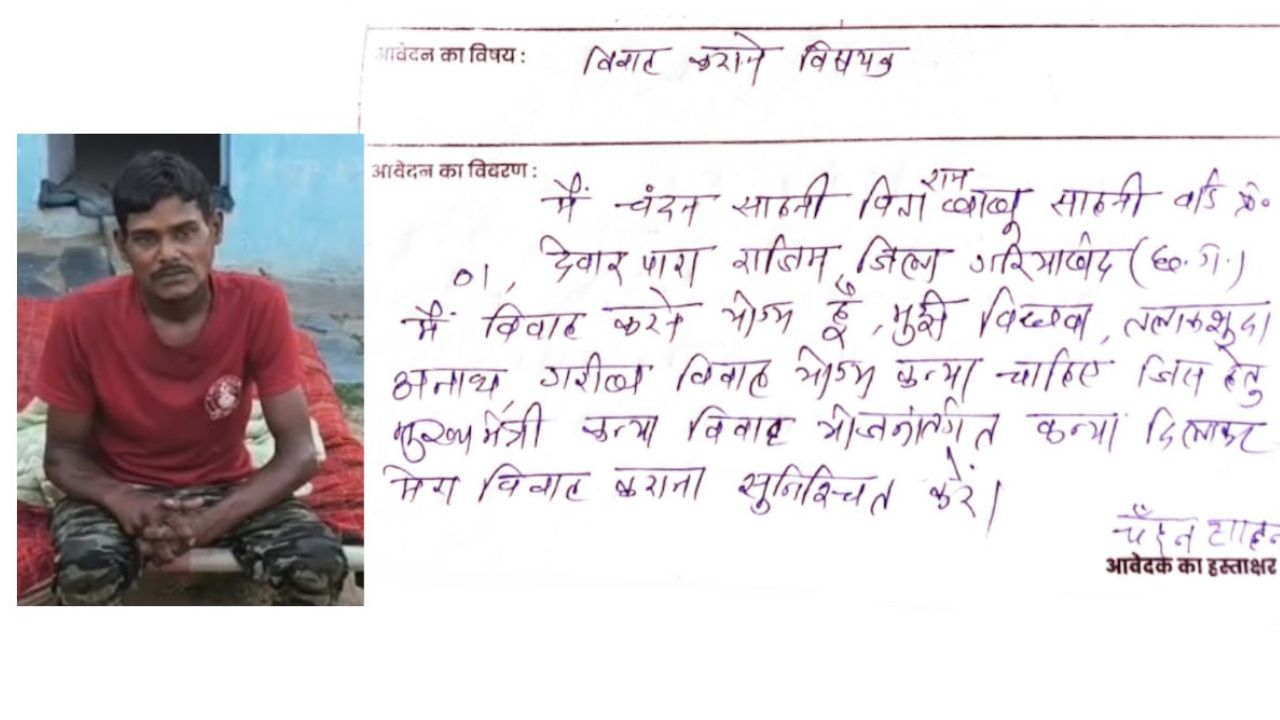 आवेदन का विषय : विवाह कराने विषयक
आवेदन का विवरण :
राम
मैं चंदन साहनी पिता बाबू साहनी वार्ड क्रं.
01, देवार पारा राजिम, जिला गरियाबंद (छ.ग.)
मैं विवाह करने योग्य हूँ, मुझे विधवा, तलाकशुदा
अनाथ, गरीब विवाह योग्य कन्या चाहिए जिस हेतु
मुख्यमंत्री कन्या विवाह योजनांतर्गत कन्या दिलाकर
मेरा विवाह कराना सुनिश्चित करें।
चंदन साहन
आवेदक का हस्ताक्षर